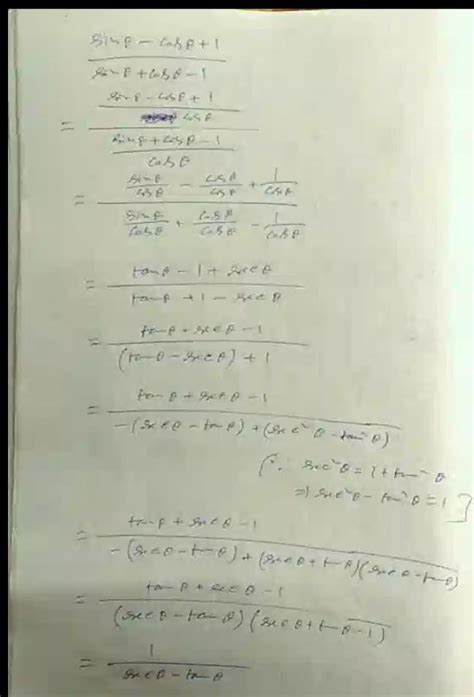 sinθ - cosθ + 1
sinθ + cosθ - 1
sinθ - cosθ + 1
cosθ
=
sinθ + cosθ - 1
cosθ
sinθ/cosθ - cosθ/cosθ + 1/cosθ
=
sinθ/cosθ + cosθ/cosθ - 1/cosθ
tanθ - 1 + secθ
=
tanθ + 1 - secθ
tanθ + secθ - 1
=
(tanθ - secθ) + 1
tanθ + secθ - 1
=
-(secθ - tanθ) + (sec²θ - tan²θ)
[∵ sec²θ = 1 + tan²θ
⇒ sec²θ - tan²θ = 1]
tanθ + secθ - 1
=
-(secθ - tanθ) + (secθ + tanθ)(secθ - tanθ)
tanθ + secθ - 1
=
(secθ - tanθ)(secθ + tanθ - 1)
1
=
secθ - tanθ